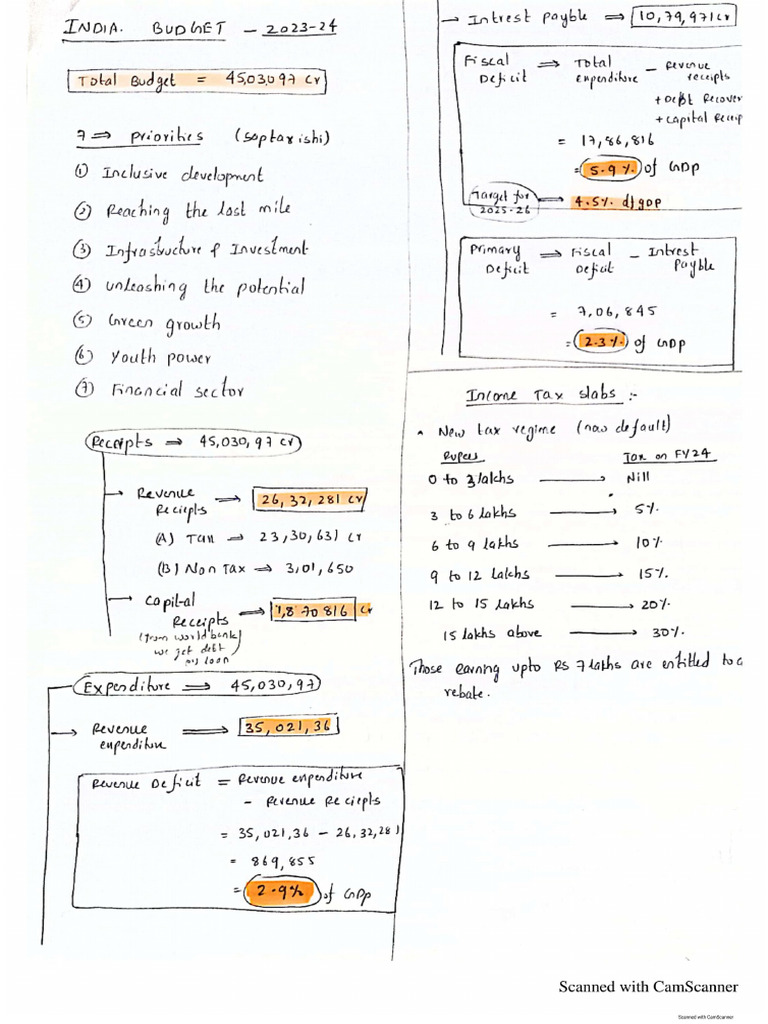 INDIA. BUDGET - 2023-24
Total Budget = 45,03,097 Cr
7 ⇒ priorities (saptarishi)
① Inclusive development
② Reaching the last mile
③ Infrastructure & Investment
④ unleashing the potential
⑤ Green growth
⑥ Youth power
⑦ Financial sector
Receipts ⇒ 45,030,97 cr
→ Revenue Reciepts ⇒ 26,32,281 cr
(A) Tax → 23,30,631 cr
(B) Non Tax → 3,01,650
→ Capital Receipts ⇒ 1,8 70 816 cr
(from world bank)
we get debt
as loan
Expenditure ⇒ 45,030,97
→ Revenue expenditure ⇒ 35,021,36
Revenue Deficit = Revenue expenditure
- Revenue Reciepts
= 35,021,36 - 26,32,281
= 869,855
= 2.9% of GDP
→ Intrest Payble ⇒ 10,79,971 cr
Fiscal Deficit ⇒ Total Expenditure - Revenue receipts
+ Debt Recover
+ Capital Receip
= 17,86,816
= 5.9% of GDP
Target for 2025-26 → 4.5% of GDP
Primary Deficit ⇒ Fiscal Deficit - Intrest Payble
= 7,06,845
= 2.3% of GDP
Income Tax slabs :-
New tax regime (now default)
Rupees Tax on FY24
0 to 3 lakhs → Nill
3 to 6 lakhs → 5%
6 to 9 lakhs → 10%
9 to 12 lakhs → 15%
12 to 15 lakhs → 20%
15 lakhs above → 30%
Those earning upto Rs 7 lakhs are entitled to a
rebate.
Scanned with CamScanner
Scanned with CamScanner